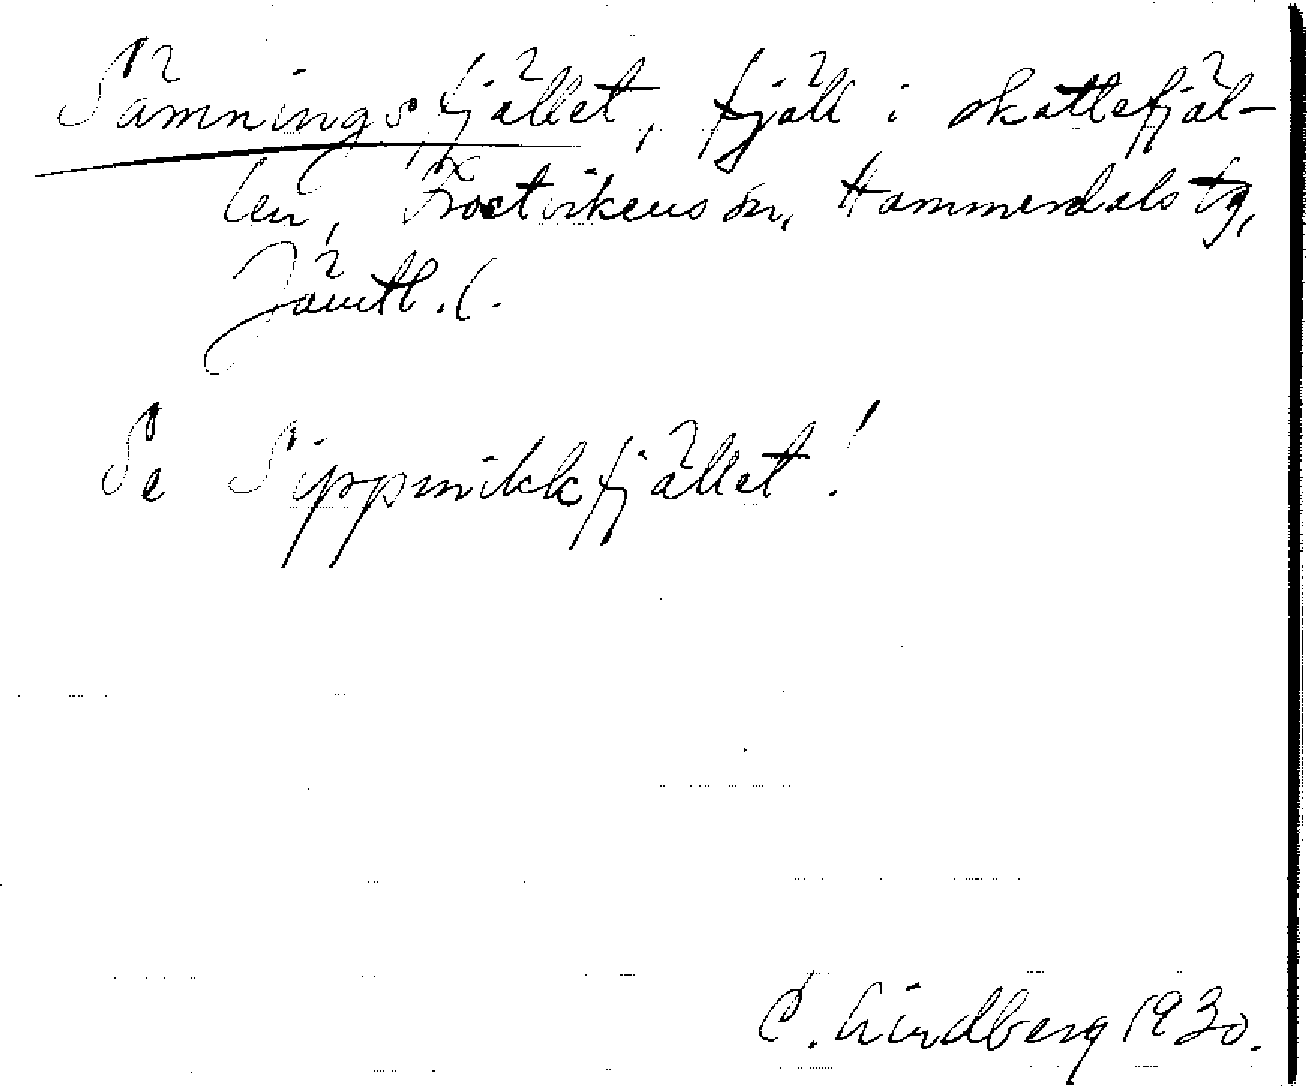 Sämningsfjället, fjäll i skattefjäl-
len, Frostvikens sn, Hammerdals tg,
Jämtl. l.
Se Sippmikkfjället!
C. Lindberg 1930.